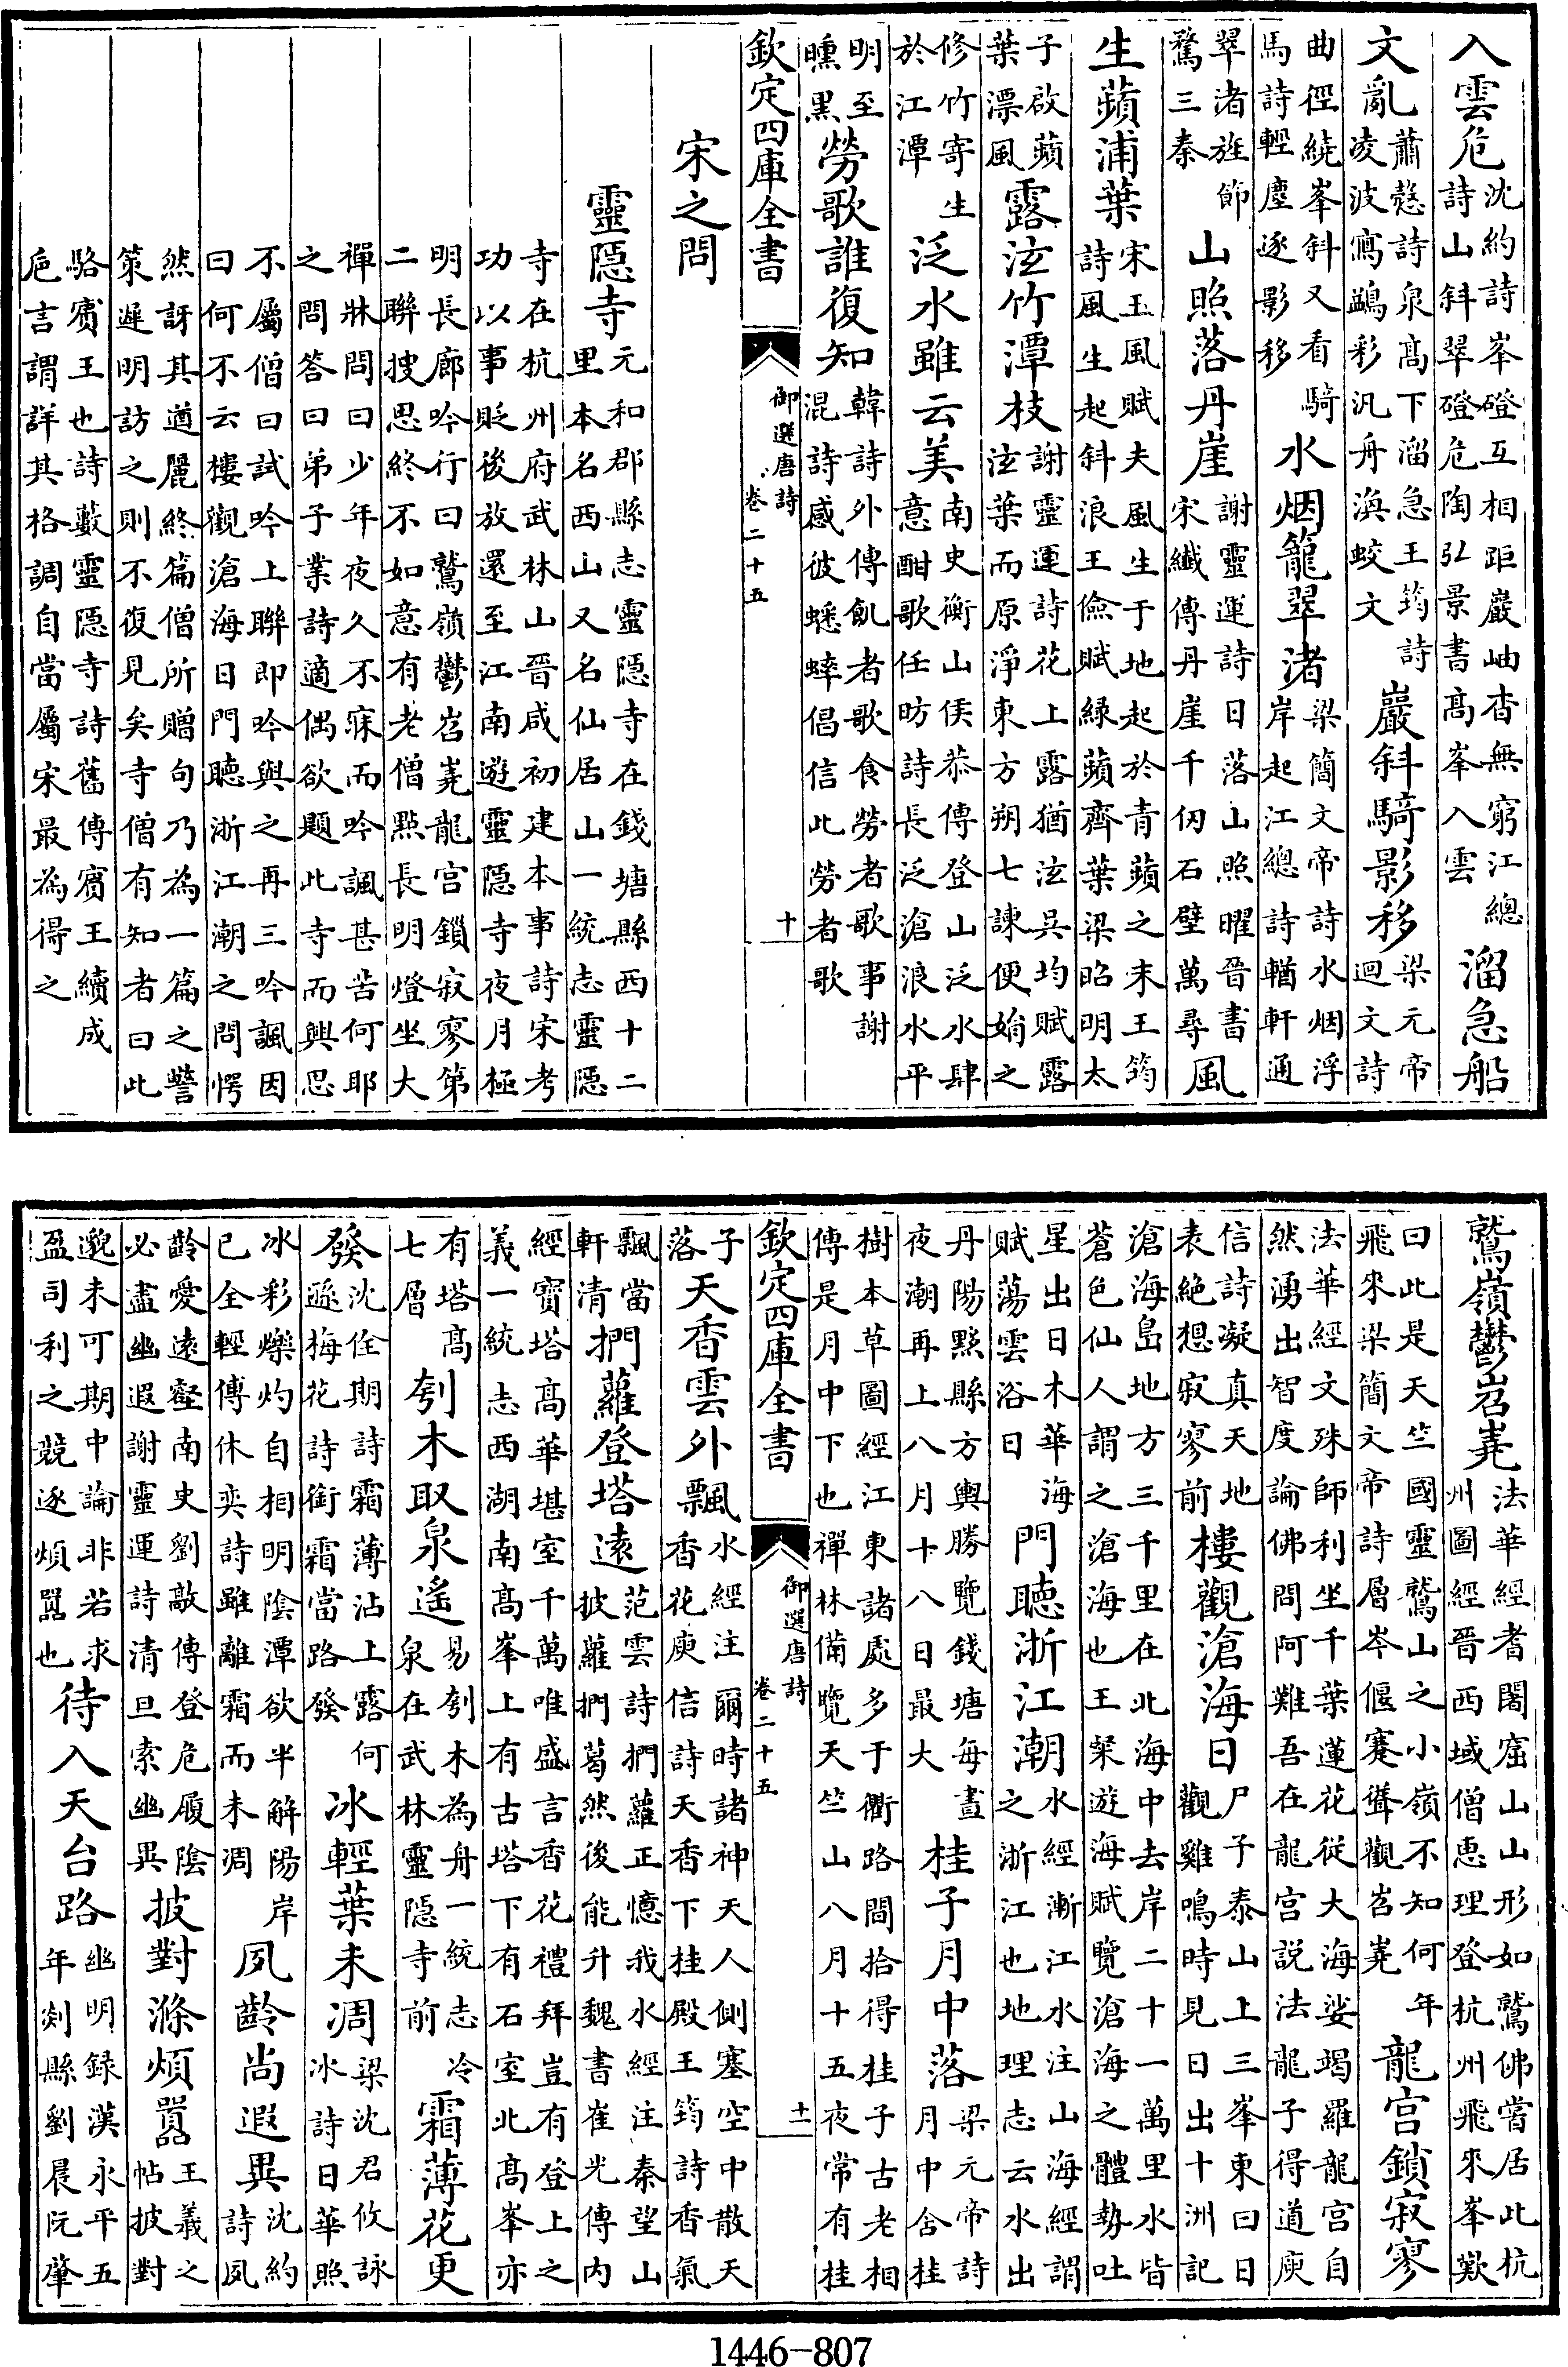 入雲危沈約詩峯磴互相距巖岫杳無窮江總詩山斜翠磴危陶弘景書髙峯入雲溜急船
文亂蕭慤詩泉髙下溜急王筠詩凌波寫鷁彩汎舟渙蛟文巖斜騎影移梁元帝迴文詩
曲徑繞峯斜又看騎馬詩輕塵逐影移水烟籠翠渚梁簡文帝詩水烟浮岸起江總詩輶軒通
翠渚旌節騖三秦山照落丹崖謝靈運詩日落山照曜晉書宋纖傳丹崖千仭石壁萬尋風
生蘋浦葉宋玉風賦夫風生于地起於青蘋之末王筠詩風生起斜浪王儉賦緑蘋齊葉梁昭明太
子啟蘋葉漂風露泫竹潭枝謝靈運詩花上露猶泫呉均賦露泫葉而原淨東方朔七諫便娟之
修竹寄生於江潭泛水雖云美南史衡山侯恭傳登山泛水肆意酣歌任昉詩長泛滄浪水平
明至曛黒勞歌誰復知韓詩外傳飢者歌食勞者歌事謝混詩感彼蟋蟀倡信此勞者歌
欽定四庫全書 御選唐詩 卷二十五 十
宋之問
靈隠寺元和郡縣志靈隠寺在錢塘縣西十二里本名西山又名仙居山一統志靈隠
寺在杭州府武林山晉咸初建本事詩宋考功以事貶後放還至江南遊靈隠寺夜月極
明長廊吟行曰鷲嶺鬱岧嶤龍宫鎖寂寥第二聯搜思終不如意有老僧點長明燈坐大
禪牀問曰少年夜久不寐而吟諷甚苦何耶之問答曰弟子業詩適偶欲題此寺而興思
不屬僧曰試吟上聯即吟與之再三吟諷因曰何不云樓觀滄海日門聽浙江潮之問愕
然訝其遒麗終篇僧所贈句乃為一篇之警策遲明訪之則不復見矣寺僧有知者曰此
駱賓王也詩藪靈隠寺詩舊傳賓王續成巵言謂詳其格調自當屬宋最為得之
鷲嶺鬱岧嶤法華經耆闍窟山山形如鷲佛嘗居此杭州圖經晉西域僧惠理登杭州飛來峯歎
曰此是天竺國靈鷲山之小嶺不知何年飛來梁簡文帝詩層岑偃蹇聳觀岧嶤龍宫鎖寂寥
法華經文殊師利坐千葉蓮花從大海娑竭羅龍宫自然湧出智度論佛問阿難吾在龍宫説法龍子得道庾
信詩凝真天地表絶想寂寥前樓觀滄海日尸子泰山上三峯東曰日觀雞鳴時見日出十洲記
滄海島地方三千里在北海中去岸二十一萬里水皆蒼色仙人謂之滄海也王粲遊海賦覽滄海之體勢吐
星出日木華海賦蕩雲浴日門聽浙江潮水經漸江水注山海經謂之浙江也地理志云水出
丹陽黟縣方輿勝覽錢塘每晝夜潮再上八月十八日最大桂子月中落梁元帝詩月中含桂
樹本草圖經江東諸處多于衢路間拾得桂子古老相傳是月中下也禪林備覽天竺山八月十五夜常有桂
欽定四庫全書 御選唐詩 卷二十五 十一
子落天香雲外飄水經注爾時諸神天人側塞空中散天香花庾信詩天香下桂殿王筠詩香氣
飄當軒清捫蘿登塔遠范雲詩捫蘿正憶我水經注秦望山披蘿捫葛然後能升魏書崔光傳内
經寶塔髙華堪室千萬唯盛言香花禮拜豈有登上之義一統志西湖南髙峯上有古塔下有石室北髙峯亦
有塔髙七層刳木取泉遙易刳木為舟一統志冷泉在武林靈隠寺前霜薄花更
發沈佺期詩霜薄沾上露何遜梅花詩銜霜當路發冰輕葉未凋梁沈君攸詠冰詩日華照
冰彩爍灼自相明陰潭欲半解陽岸已全輕傅休奕詩雖離霜而未凋夙齡尚遐異沈約詩夙
齡愛遠壑南史劉敲傳登危履陰必盡幽遐謝靈運詩清旦索幽異披對滌煩囂王羲之帖披對
邈未可期中論非若求盈司利之競逐煩囂也待入天台路幽明録漢永平五年剡縣劉晨阮肇
1446-807